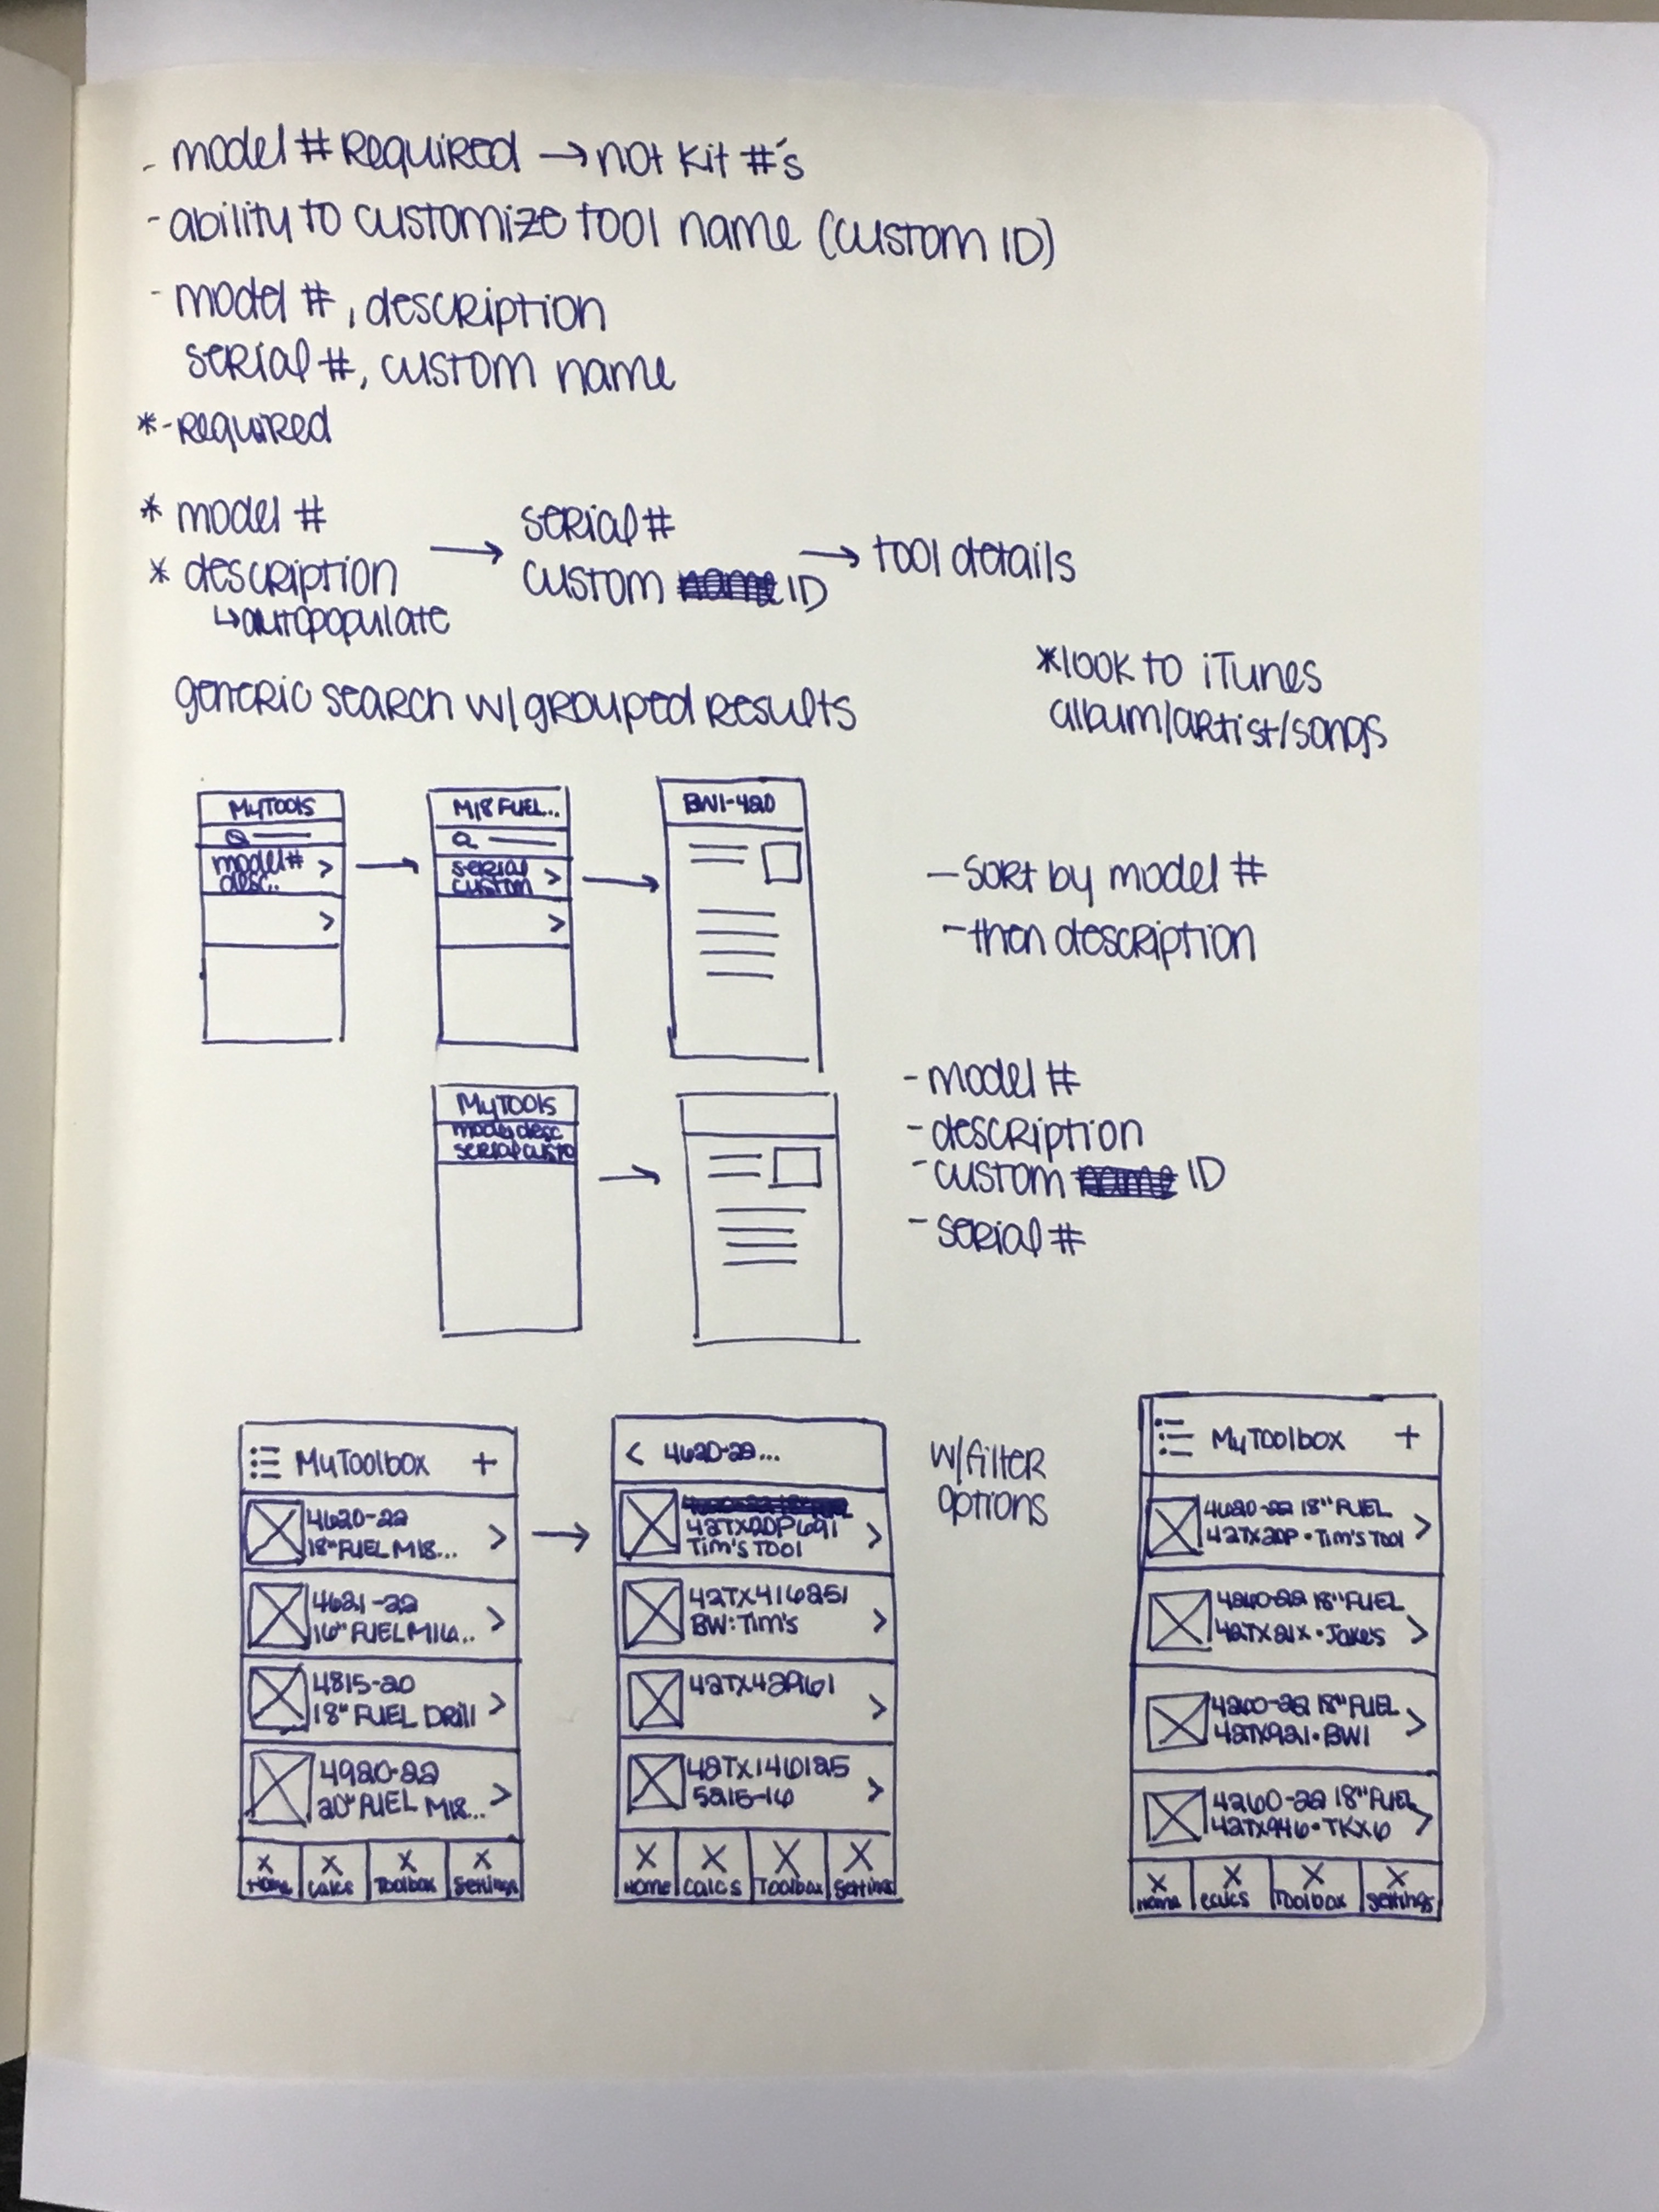 - model # Required → not kit #'s
- ability to customize tool name (custom ID)
- model #, description
serial #, custom name
* - Required
* model #
* description
↳ autopopulate
→
serial #
custom ID
→ tool details
generic search w/ grouped results
*look to iTunes
album/artist/songs
MyTools
model #
desc.
M18 FUEL...
serial
custom
BW1-420
- sort by model #
- then description
MyTools
model desc
serial custo
- model #
- description
- custom ID
- serial #
MyToolbox +
4620-22
18" FUEL M18...
4621-22
16" FUEL M16...
4815-20
18" FUEL Drill
4920-22
20" FUEL M18...
Home Calcs Toolbox Settings
< 4620-22...
42TX2DP691
Tim's Tool
42TX416251
BW: Tim's
42TX42961
42TX146125
5215-16
Home Calcs Toolbox Settings
w/filter
options
MyToolbox +
4620-22 18" FUEL
42TX2DP • Tim's Tool
4260-22 18" FUEL
42TX21X • Jake's
4260-22 18" FUEL
42TX921 • BW1
4260-22 18" FUEL
42TX946 • TKX6
Home Calcs Toolbox Settings